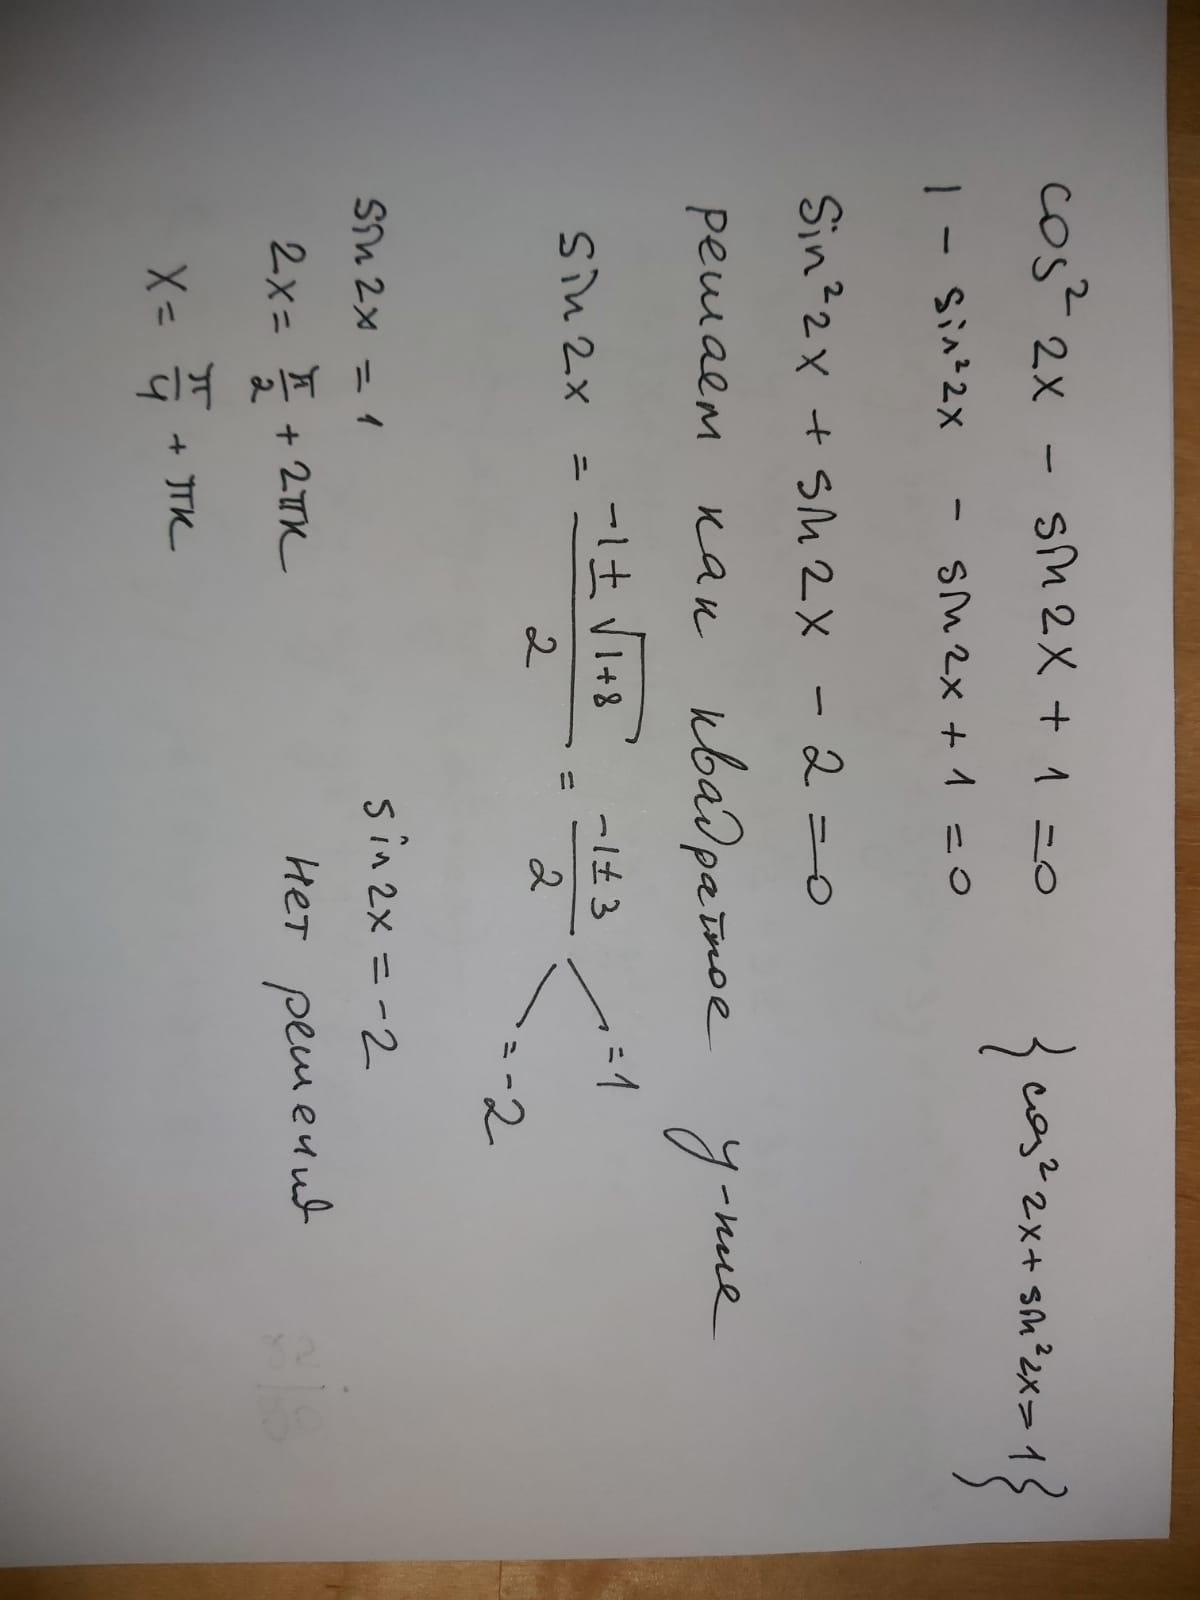 cos² 2x - sin 2x + 1 = 0 } cos² 2x + sin² 2x = 1 {
1 - sin² 2x - sin 2x + 1 = 0
sin² 2x + sin 2x - 2 = 0
решаем как квадратное у-ние
sin 2x = (-1 ± √(1+8))/2 = (-1 ± 3)/2 = 1
= -2
sin 2x = 1 sin 2x = -2
2x = π/2 + 2πк Нет решений
x = π/4 + πк